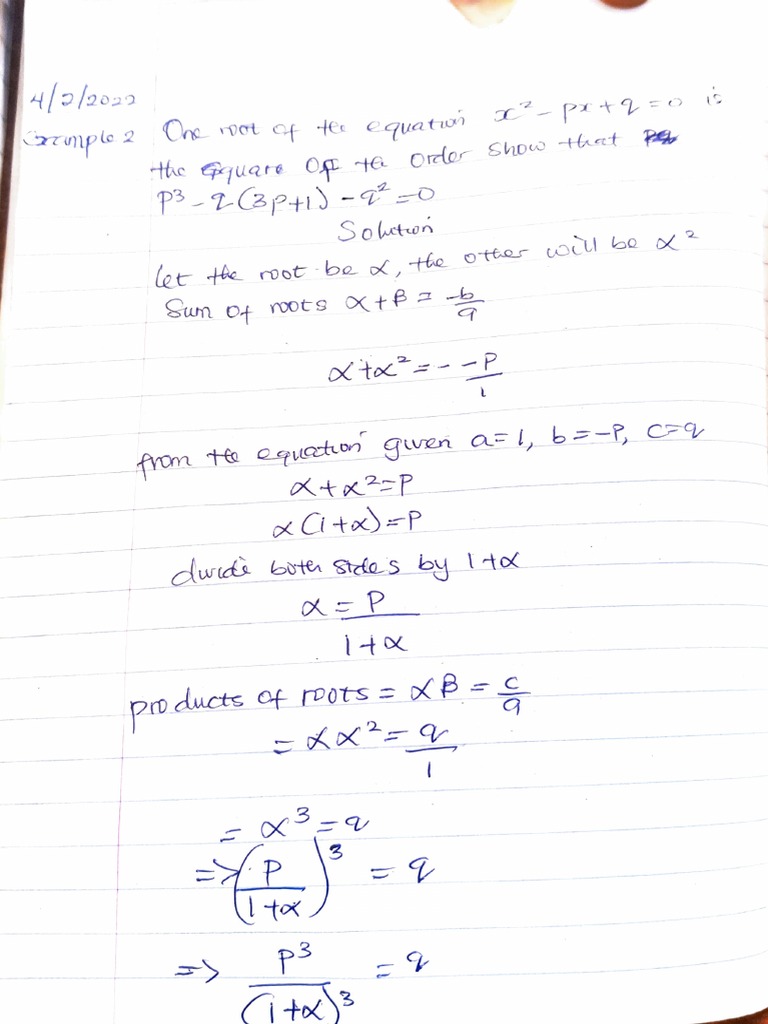 4/2/2022
Example 2 One root of the equation x² - px + q = 0 is
the square of the order show that
p³ - q(3p+1) - q² = 0
Solution
let the root be α, the other will be α²
Sum of roots α + β = -b/a
α + α² = - -p/1
from the equation given a=1, b=-p, c=q
α + α² = p
α(1+α) = p
divide both sides by 1+α
α = p/(1+α)
products of roots = αβ = c/a
= αα² = q/1
= α³ = q
=> (p/(1+α))³ = q
=> p³/(1+α)³ = q